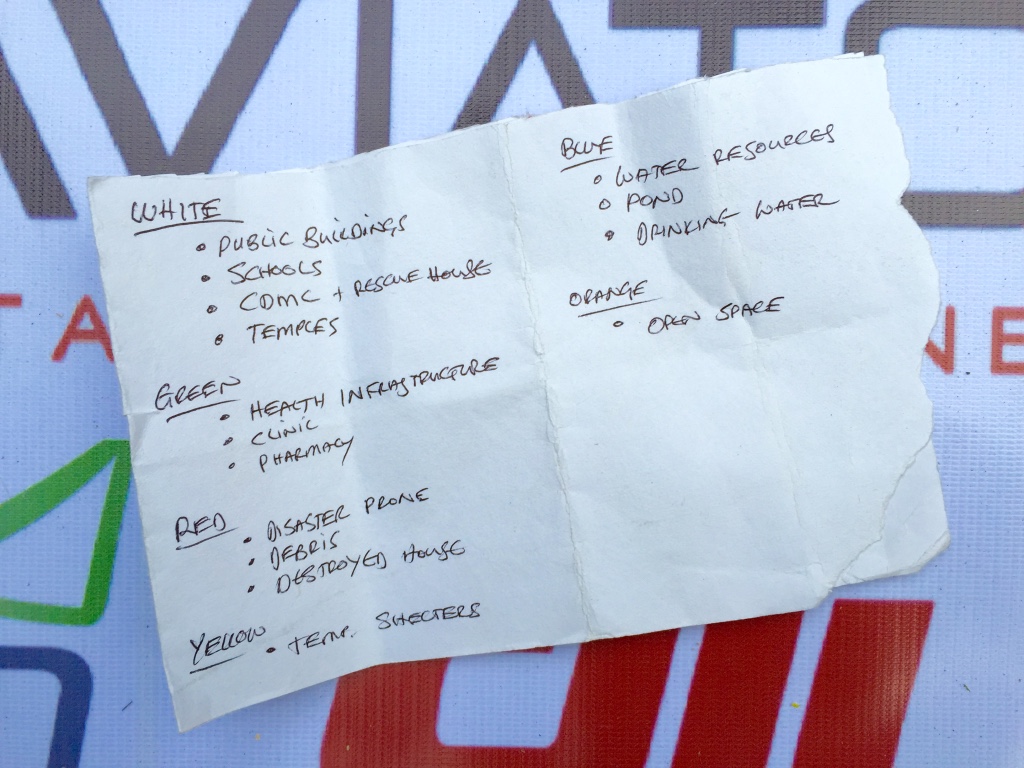 WHITE
• PUBLIC BUILDINGS
• SCHOOLS
• CDMC + RESCUE HOUSE
• TEMPLES
GREEN
• HEALTH INFRASTRUCTURE
• CLINIC
• PHARMACY
RED
• DISASTER PRONE
• DEBRIS
• DESTROYED HOUSE
YELLOW • TEMP. SHELTERS
BLUE
• WATER RESOURCES
• POND
• DRINKING WATER
ORANGE
• OPEN SPACE